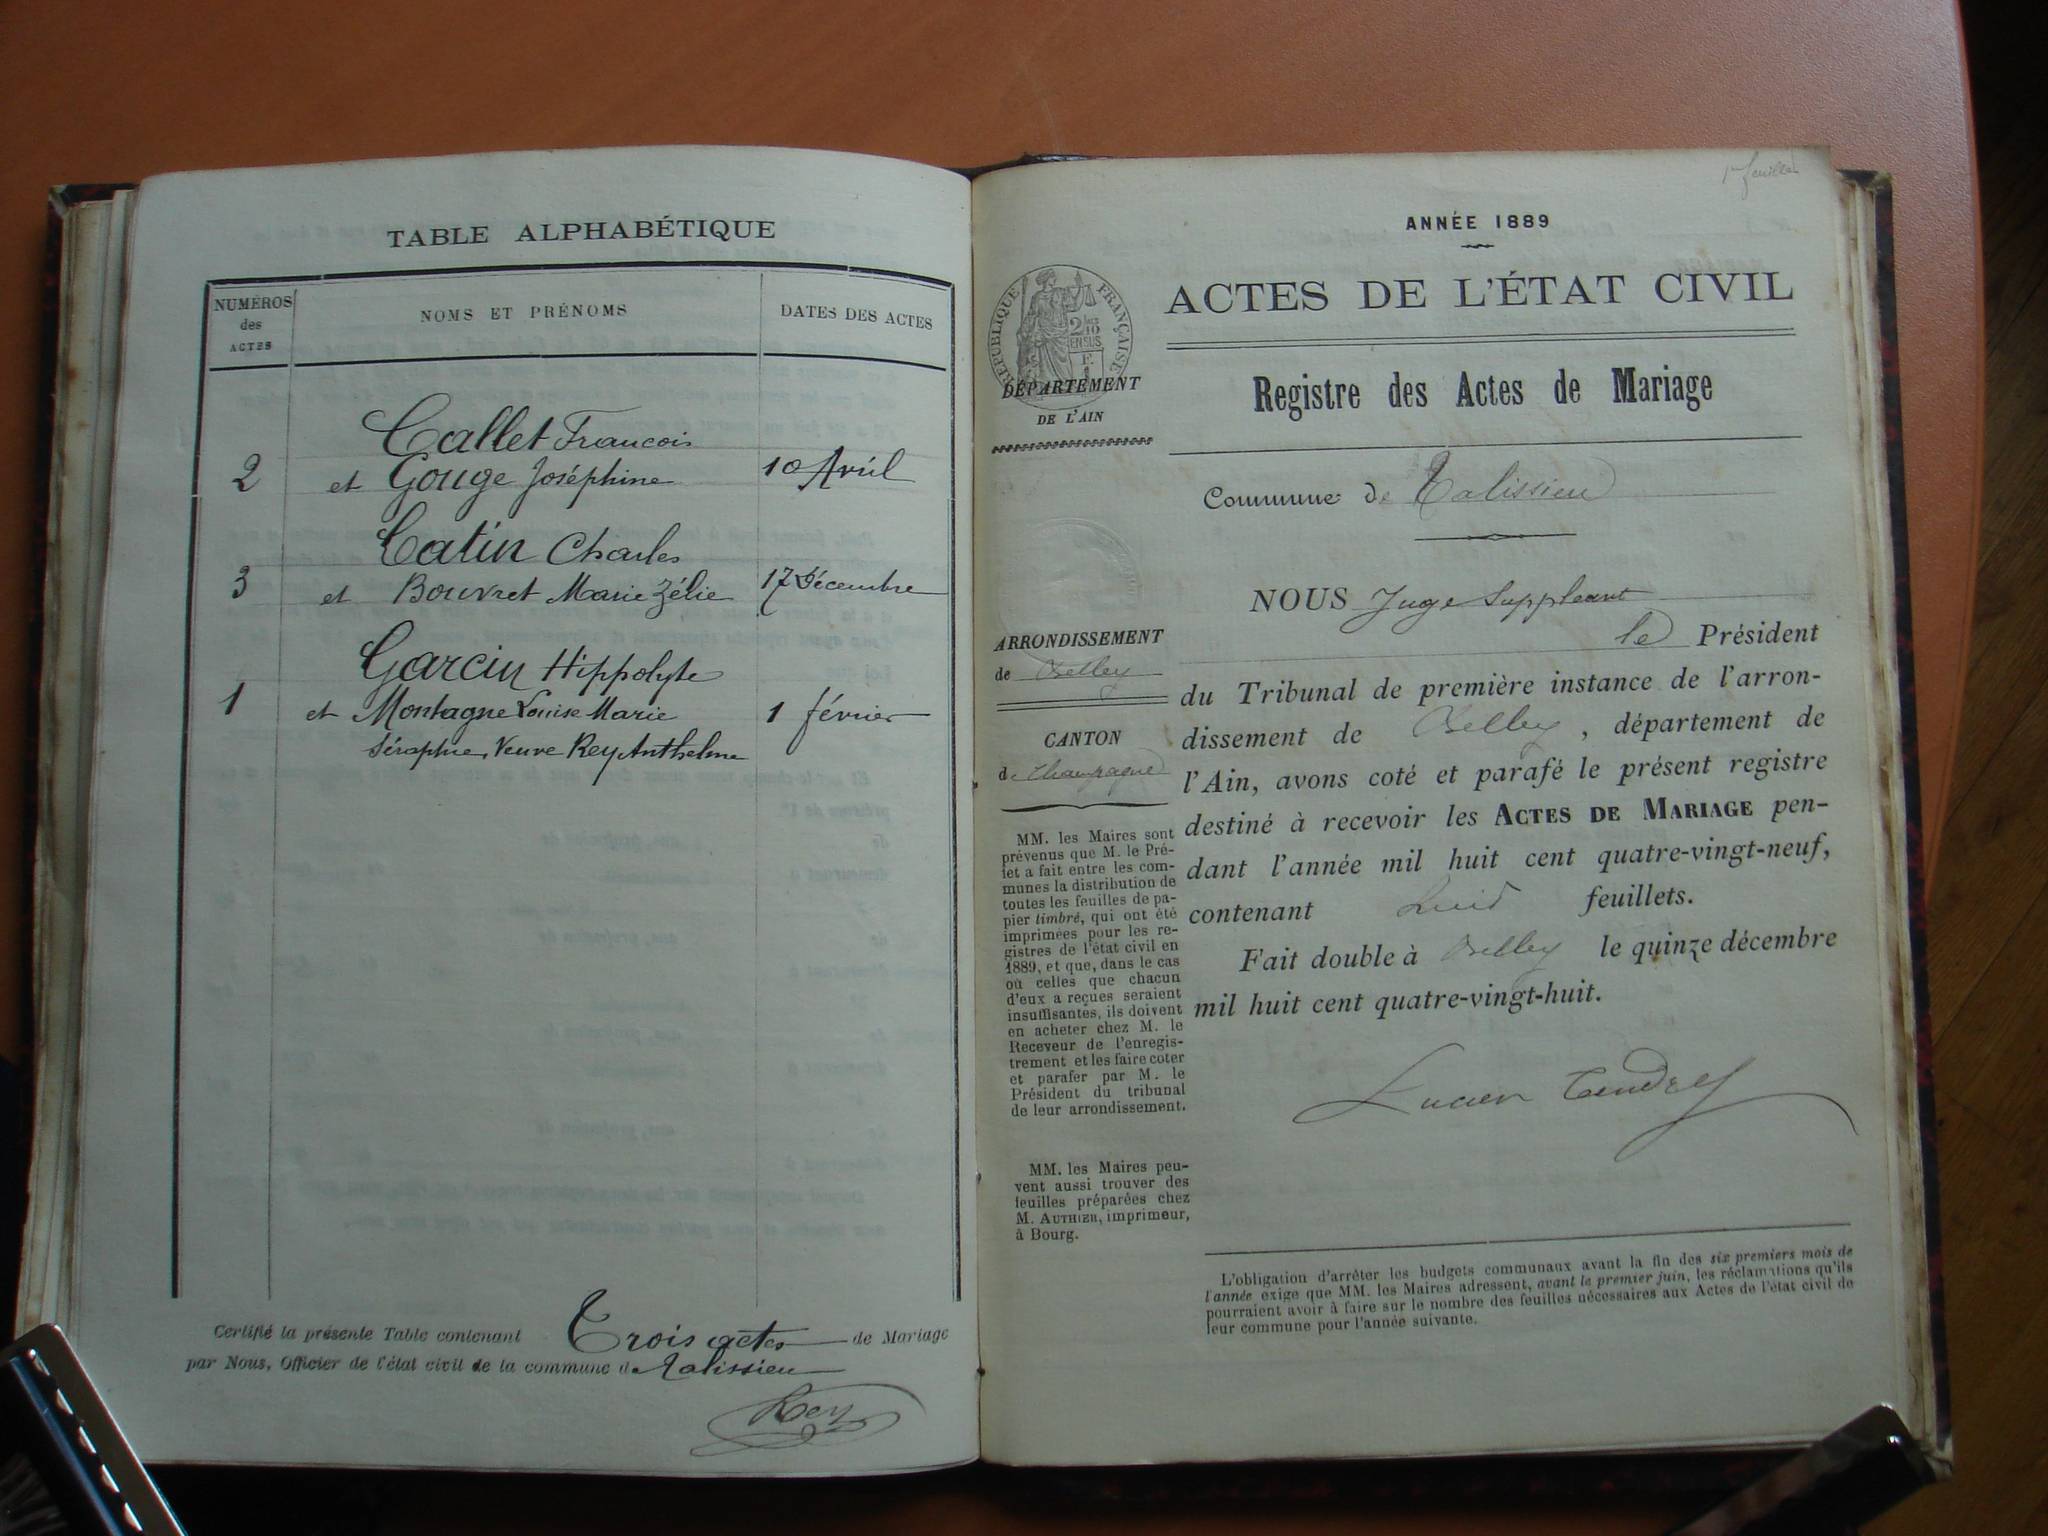 TABLE ALPHABÉTIQUE
NUMÉROS des ACTES
NOMS ET PRÉNOMS
DATES DES ACTES
Callet Francois
2 et Gouge Joséphine 10 Avril
Catin Charles
3 et Bouvret Marie Zélie 17 Décembre
Garcin Hippolyte
1 et Montagne Louise Marie 1 février
Séraphie Veuve Rey Anthelme
Certifié la présente Table contenant Trois actes de Mariage
par Nous, Officier de l'état civil de la commune de Talissieu
Rey
1er feuillet
ANNÉE 1889
ACTES DE L'ÉTAT CIVIL
RÉPUBLIQUE FRANÇAISE
2 10
EN SUS
DÉPARTEMENT
DE L'AIN
Registre des Actes de Mariage
Commune de Talissieu
ARRONDISSEMENT
de Belley
CANTON
de Champagne
MM. les Maires sont
prévenus que M. le Pré-
fet a fait entre les com-
munes la distribution de
toutes les feuilles de pa-
pier timbré, qui ont été
imprimées pour les re-
gistres de l'état civil en
1889, et que, dans le cas
où celles que chacun
d'eux a reçues seraient
insuffisantes, ils doivent
en acheter chez M. le
Receveur de l'enregis-
trement et les faire coter
et parafer par M. le
Président du tribunal
de leur arrondissement.
MM. les Maires peu-
vent aussi trouver des
feuilles préparées chez
M. AUTHIER, imprimeur,
à Bourg.
NOUS Juge Suppleant
le Président
du Tribunal de première instance de l'arron-
dissement de Belley, département de
l'Ain, avons coté et parafé le présent registre
destiné à recevoir les ACTES DE MARIAGE pen-
dant l'année mil huit cent quatre-vingt-neuf,
contenant huit feuillets.
Fait double à Belley le quinze décembre
mil huit cent quatre-vingt-huit.
Lucien Tendret
L'obligation d'arrêter les budgets communaux avant la fin des six premiers mois de
l'année exige que MM. les Maires adressent, avant le premier juin, les réclamations qu'ils
pourraient avoir à faire sur le nombre des feuilles nécessaires aux Actes de l'état civil de
leur commune pour l'année suivante.